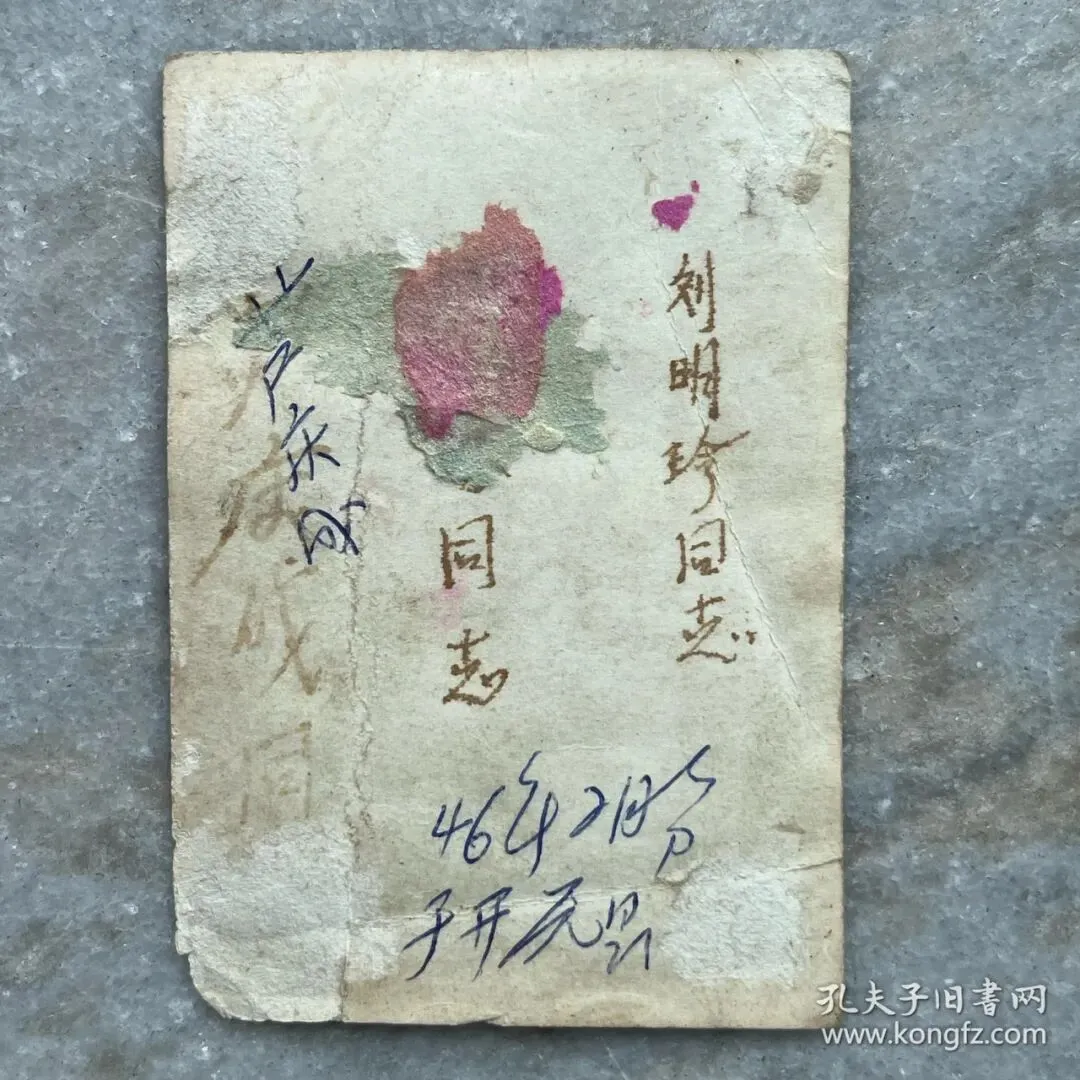 刘明珍同志
同志
成同
46年2月份
于开元县
孔夫子旧书网
www.kongfz.com